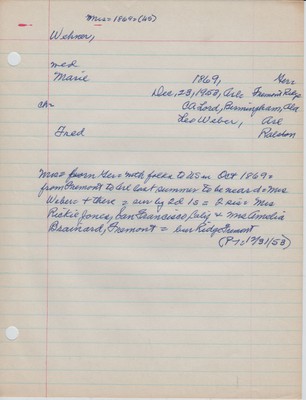 Mrs= 1869= (45)
Wehner,
med
Marie 1869, Ger=
Dec, 28, 1953, Arl= Fremont Ridge
ch= CA Lord, Birmingham, Ala
Leo Weber, Arl
Fred Ralston
Mrs= born Ger= with folks to US in Oct 1869=
from Fremont to Arl last summer to be near d= Mrs
Weber= + there = sur by 2d 1s = 2 sis= Mrs
Rickie Jones, San Francisco, Calif + Mrs Amelia
Brainard, Fremont = bur Ridge Fremont
(P-T= 12/31/53)